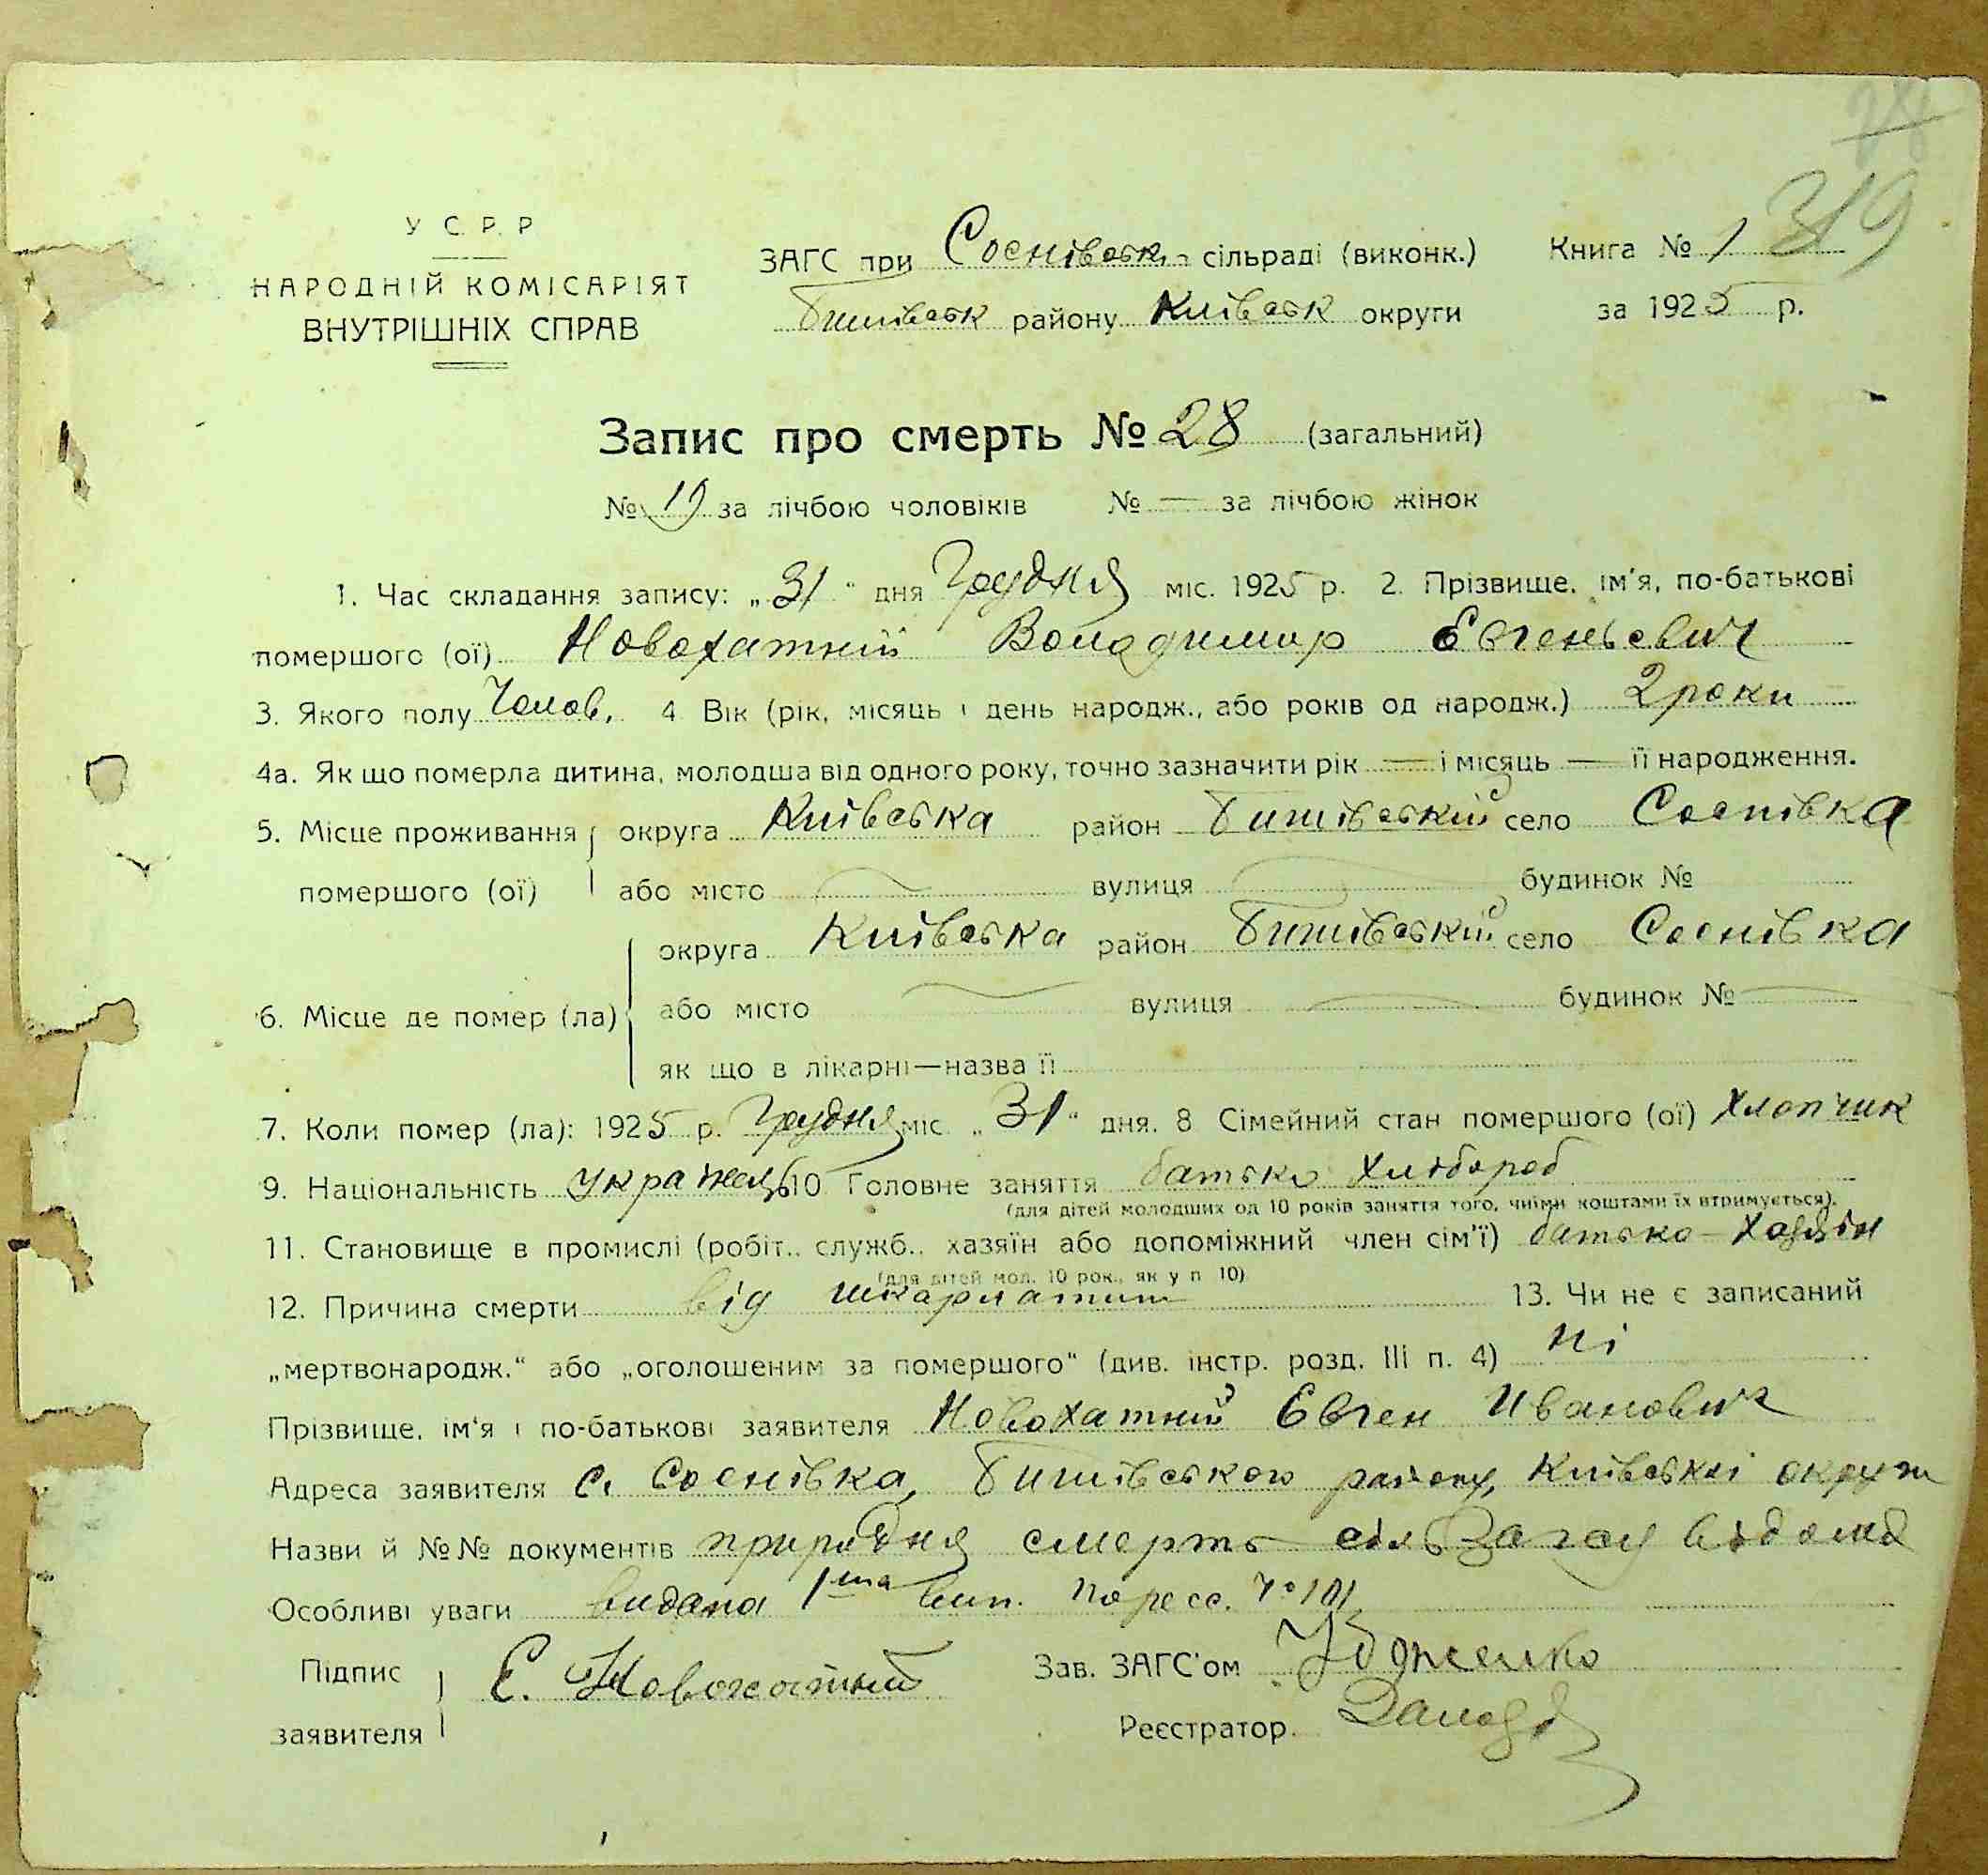 28
319
У С. Р. Р
НАРОДНІЙ КОМІСАРІЯТ
ВНУТРІШНІХ СПРАВ
ЗАГС при Соснівськ. сільраді (виконк.)
Бишівськ району Київськ округи
Книга № 1
за 1925 р.
Запис про смерть № 28 (загальний)
№ 19 за лічбою чоловіків № — за лічбою жінок
1. Час складання запису: „31" дня Грудня міс. 1925 р. 2. Прізвище, ім'я, по-батькові
помершого (ої) Новохатній Володимир Євгеньєвич
3. Якого полу Чолов. 4 Вік (рік, місяць і день народж., або років од народж.) 2 роки
4а. Як що померла дитина, молодша від одного року, точно зазначити рік — і місяць — її народження.
5. Місце проживання округа Київська район Бишівський село Соснівка
помершого (ої) або місто вулиця будинок №
округа Київська район Бишівський село Соснівка
6. Місце де помер (ла) або місто вулиця будинок № —
як що в лікарні—назва її
7. Коли помер (ла): 1925 р. Грудня міс. „31" дня. 8 Сімейний стан помершого (ої) Хлопчик
9. Національність украінець 10 Головне заняття батько Хлібороб
(для дітей молодших од 10 років заняття того, чиїми коштами їх втримується).
11. Становище в промислі (робіт., служб., хазяїн або допоміжний член сім'ї) батько - Хазяін
(для дітей мол. 10 рок., як у п 10)
12. Причина смерти від шкарлатини 13. Чи не є записаний
„мертвонародж." або „оголошеним за помершого" (див. інстр. розд. III п. 4) ні
Прізвище, ім'я і по-батькові заявителя Новохатний Євген Иванович
Адреса заявителя с. Соснівка, Бишівського району, Київські округи
Назви й №№ документів природня смерть сільЗагсу відома
Особливі уваги видана 1ша вип.
Підпис заявителя Є. Новохатний
Зав. ЗАГС'ом
Реєстратор.